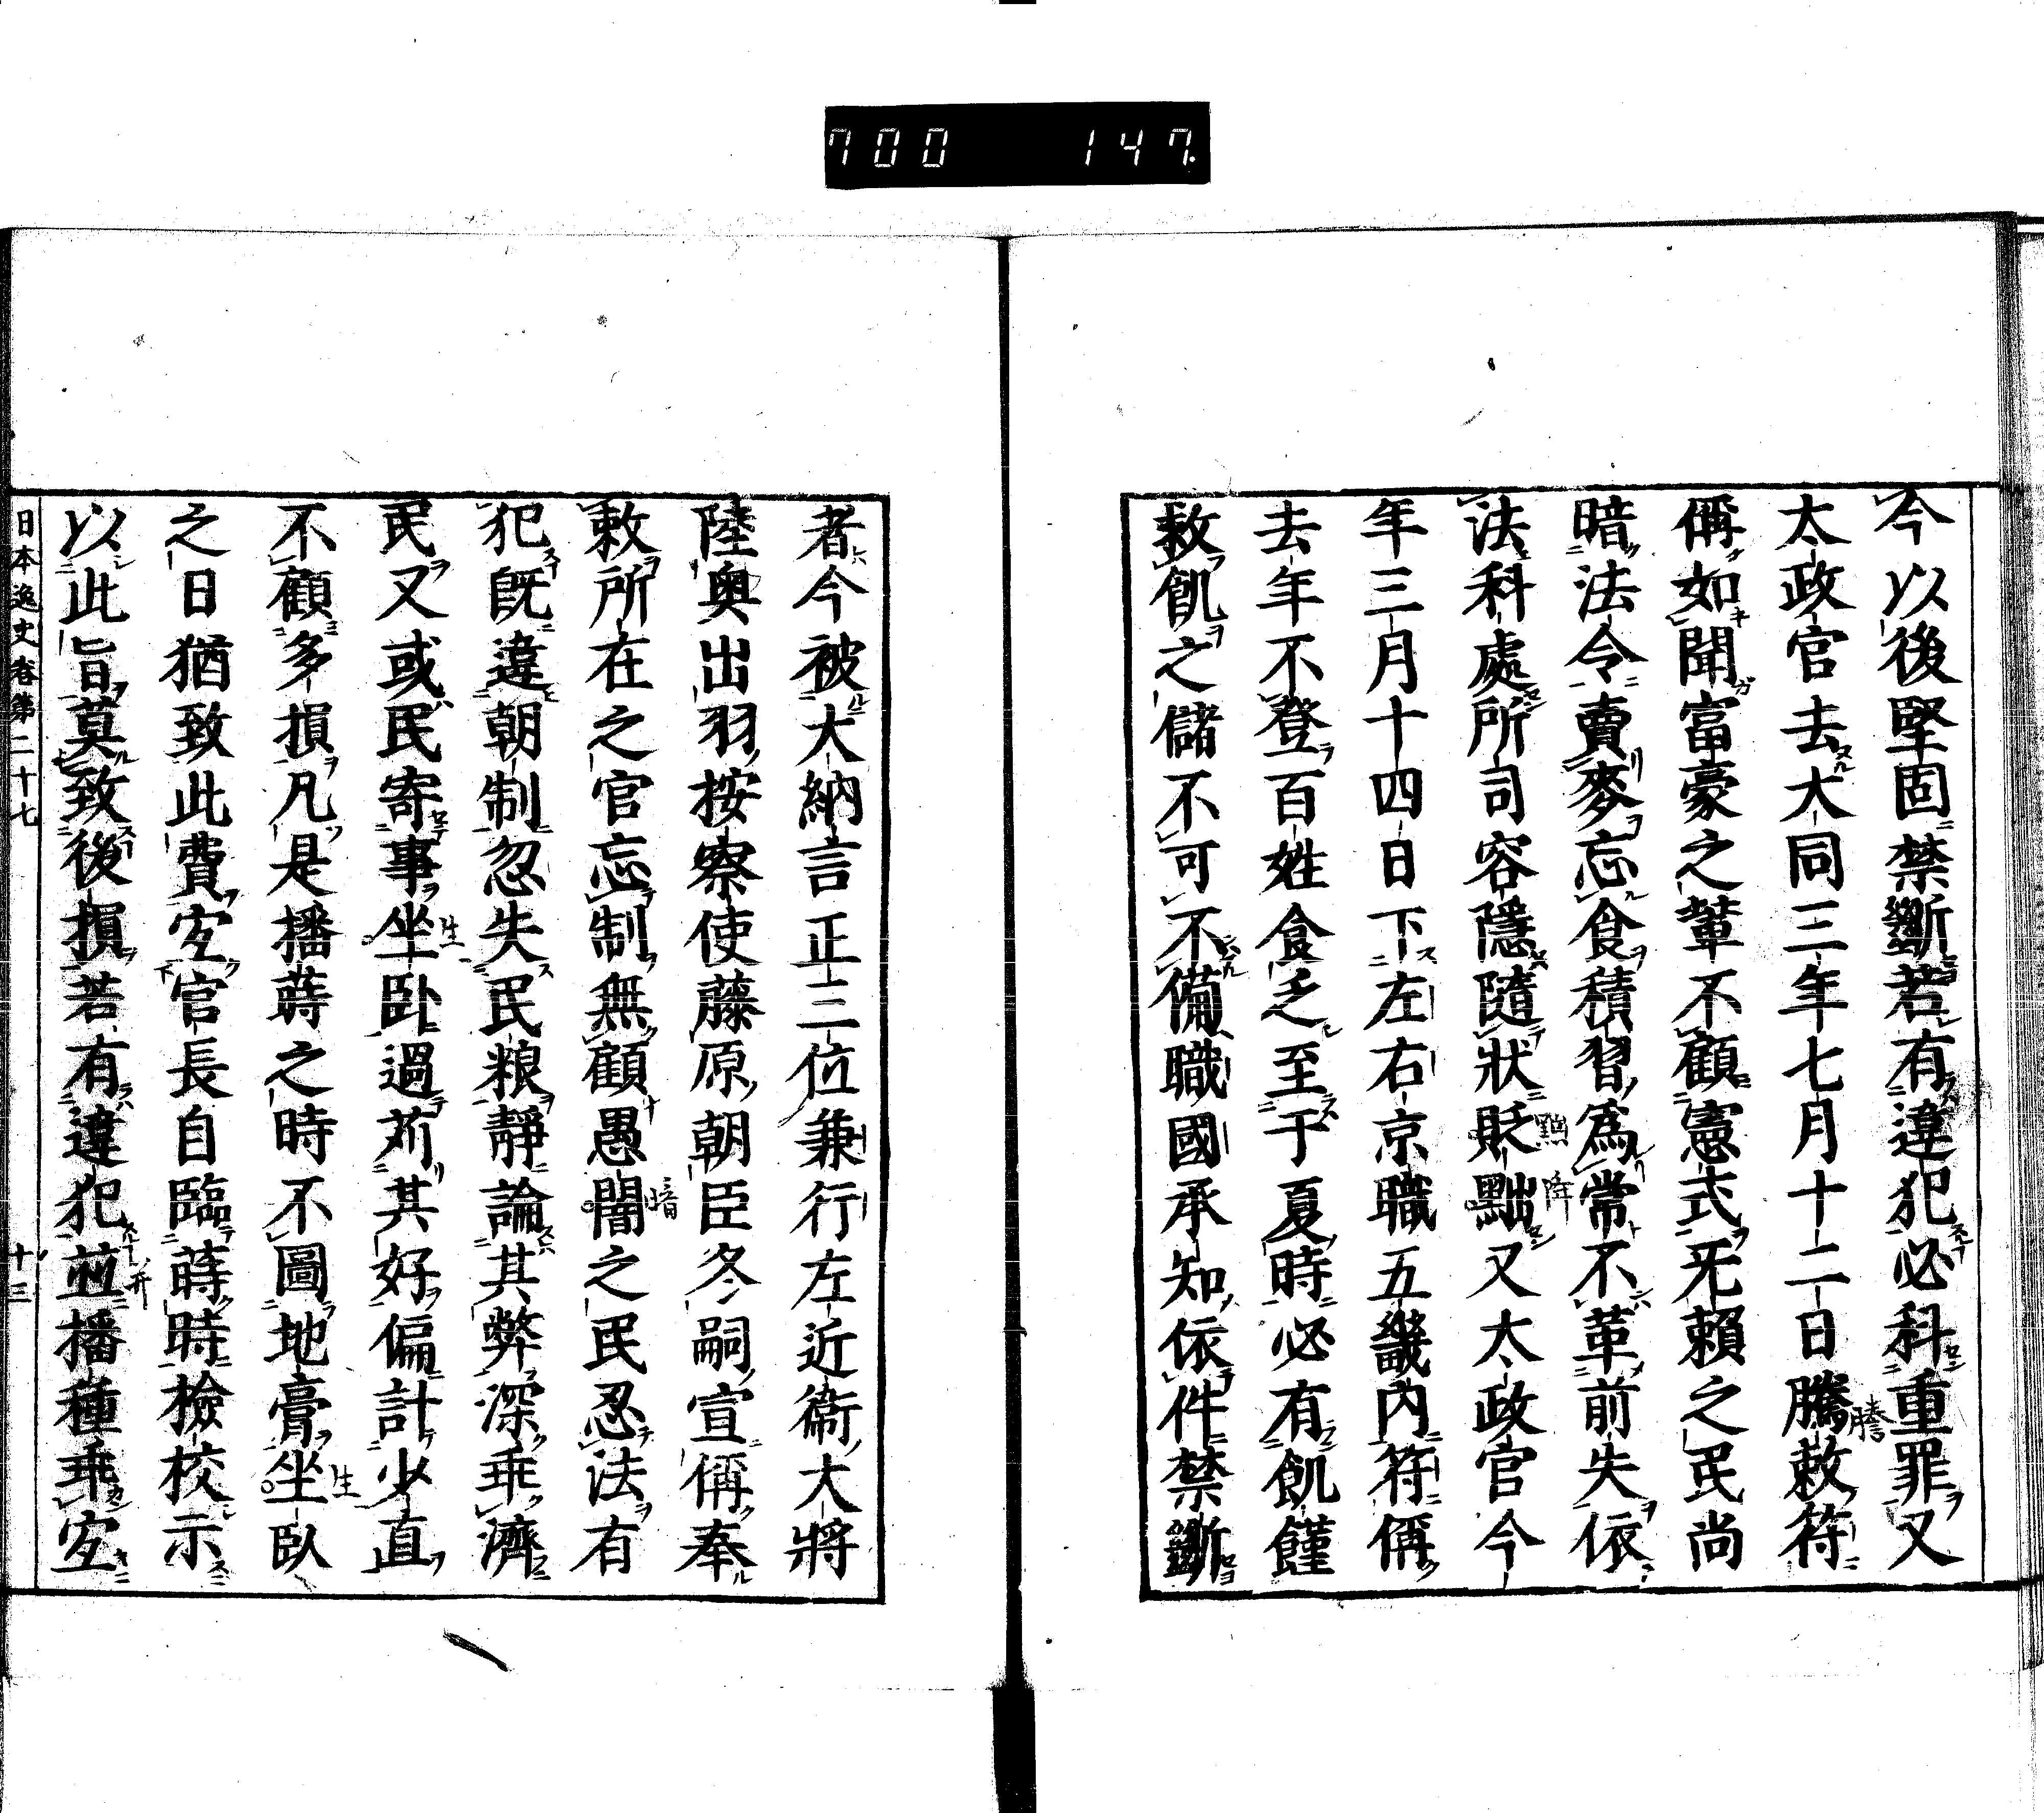 700 147
今以後堅固禁斷若有違犯必科重罪又
太政官去大同三年七月十二日騰敕符
稱如聞富豪之輩不顧憲式旡賴之民尚
暗法令賣麥忘食積習爲常不革前失依
法科處所司容隱隨狀貶黜又太政官今
年三月十四日下左右京職五畿内符稱
去年不登百姓食乏至于夏時必有飢饉
救飢之儲不可不備職國承知依件禁斷
者今被大納言正三位兼行左近衞大將
陸奥出羽按察使藤原朝臣冬嗣宣稱奉
敕所在之官忘制無顧愚闇之民忍法有
犯既違朝制忽失民粮靜論其弊深乖濟
民又或民寄事坐臥過苅其好偏計少直
不顧多損凡是播蒔之時不圖地膏坐臥
之日猶致此費宜官長自臨蒔時檢校示
以此旨莫致後損若有違犯並播種乖宜
日本逸史卷第二十七 十三